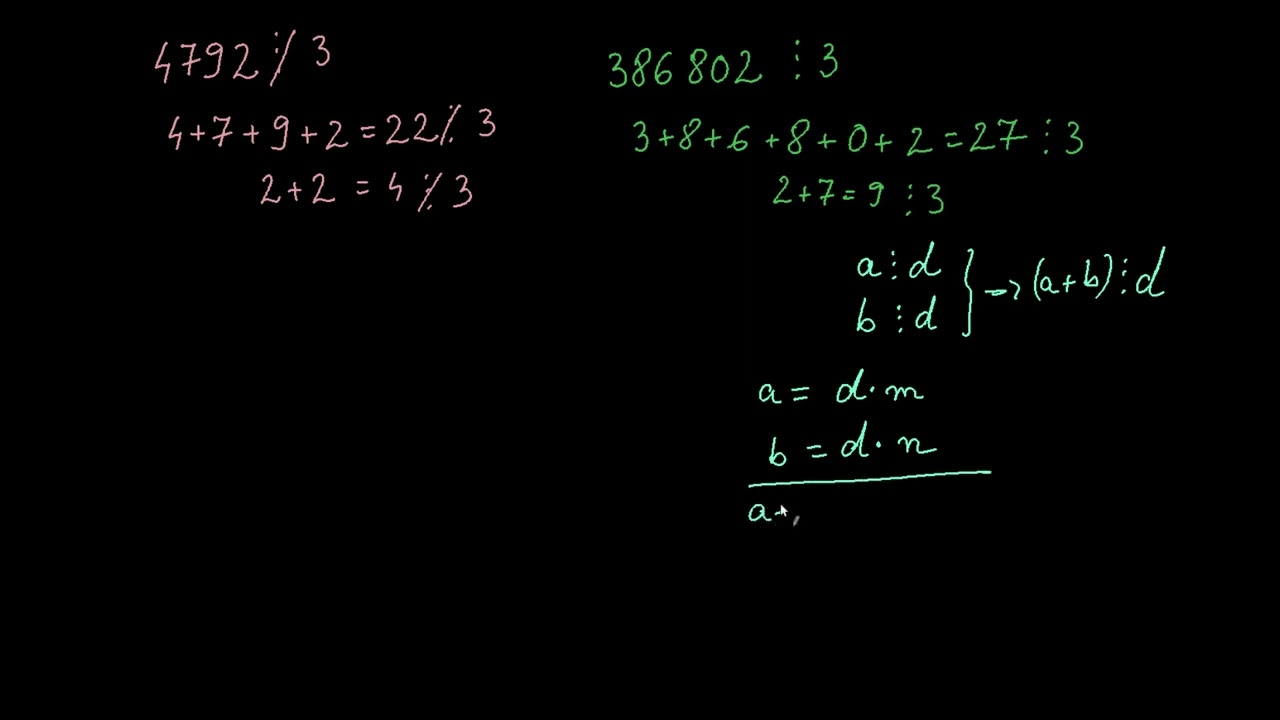 4792 ⋮̸ 3
4+7+9+2=22 ⋮̸ 3
2+2 = 4 ⋮̸ 3
386802 ⋮ 3
3+8+6+8+0+2=27 ⋮ 3
2+7=9 ⋮ 3
a ⋮ d
b ⋮ d } → (a+b) ⋮ d
a = d·m
b = d·n
a